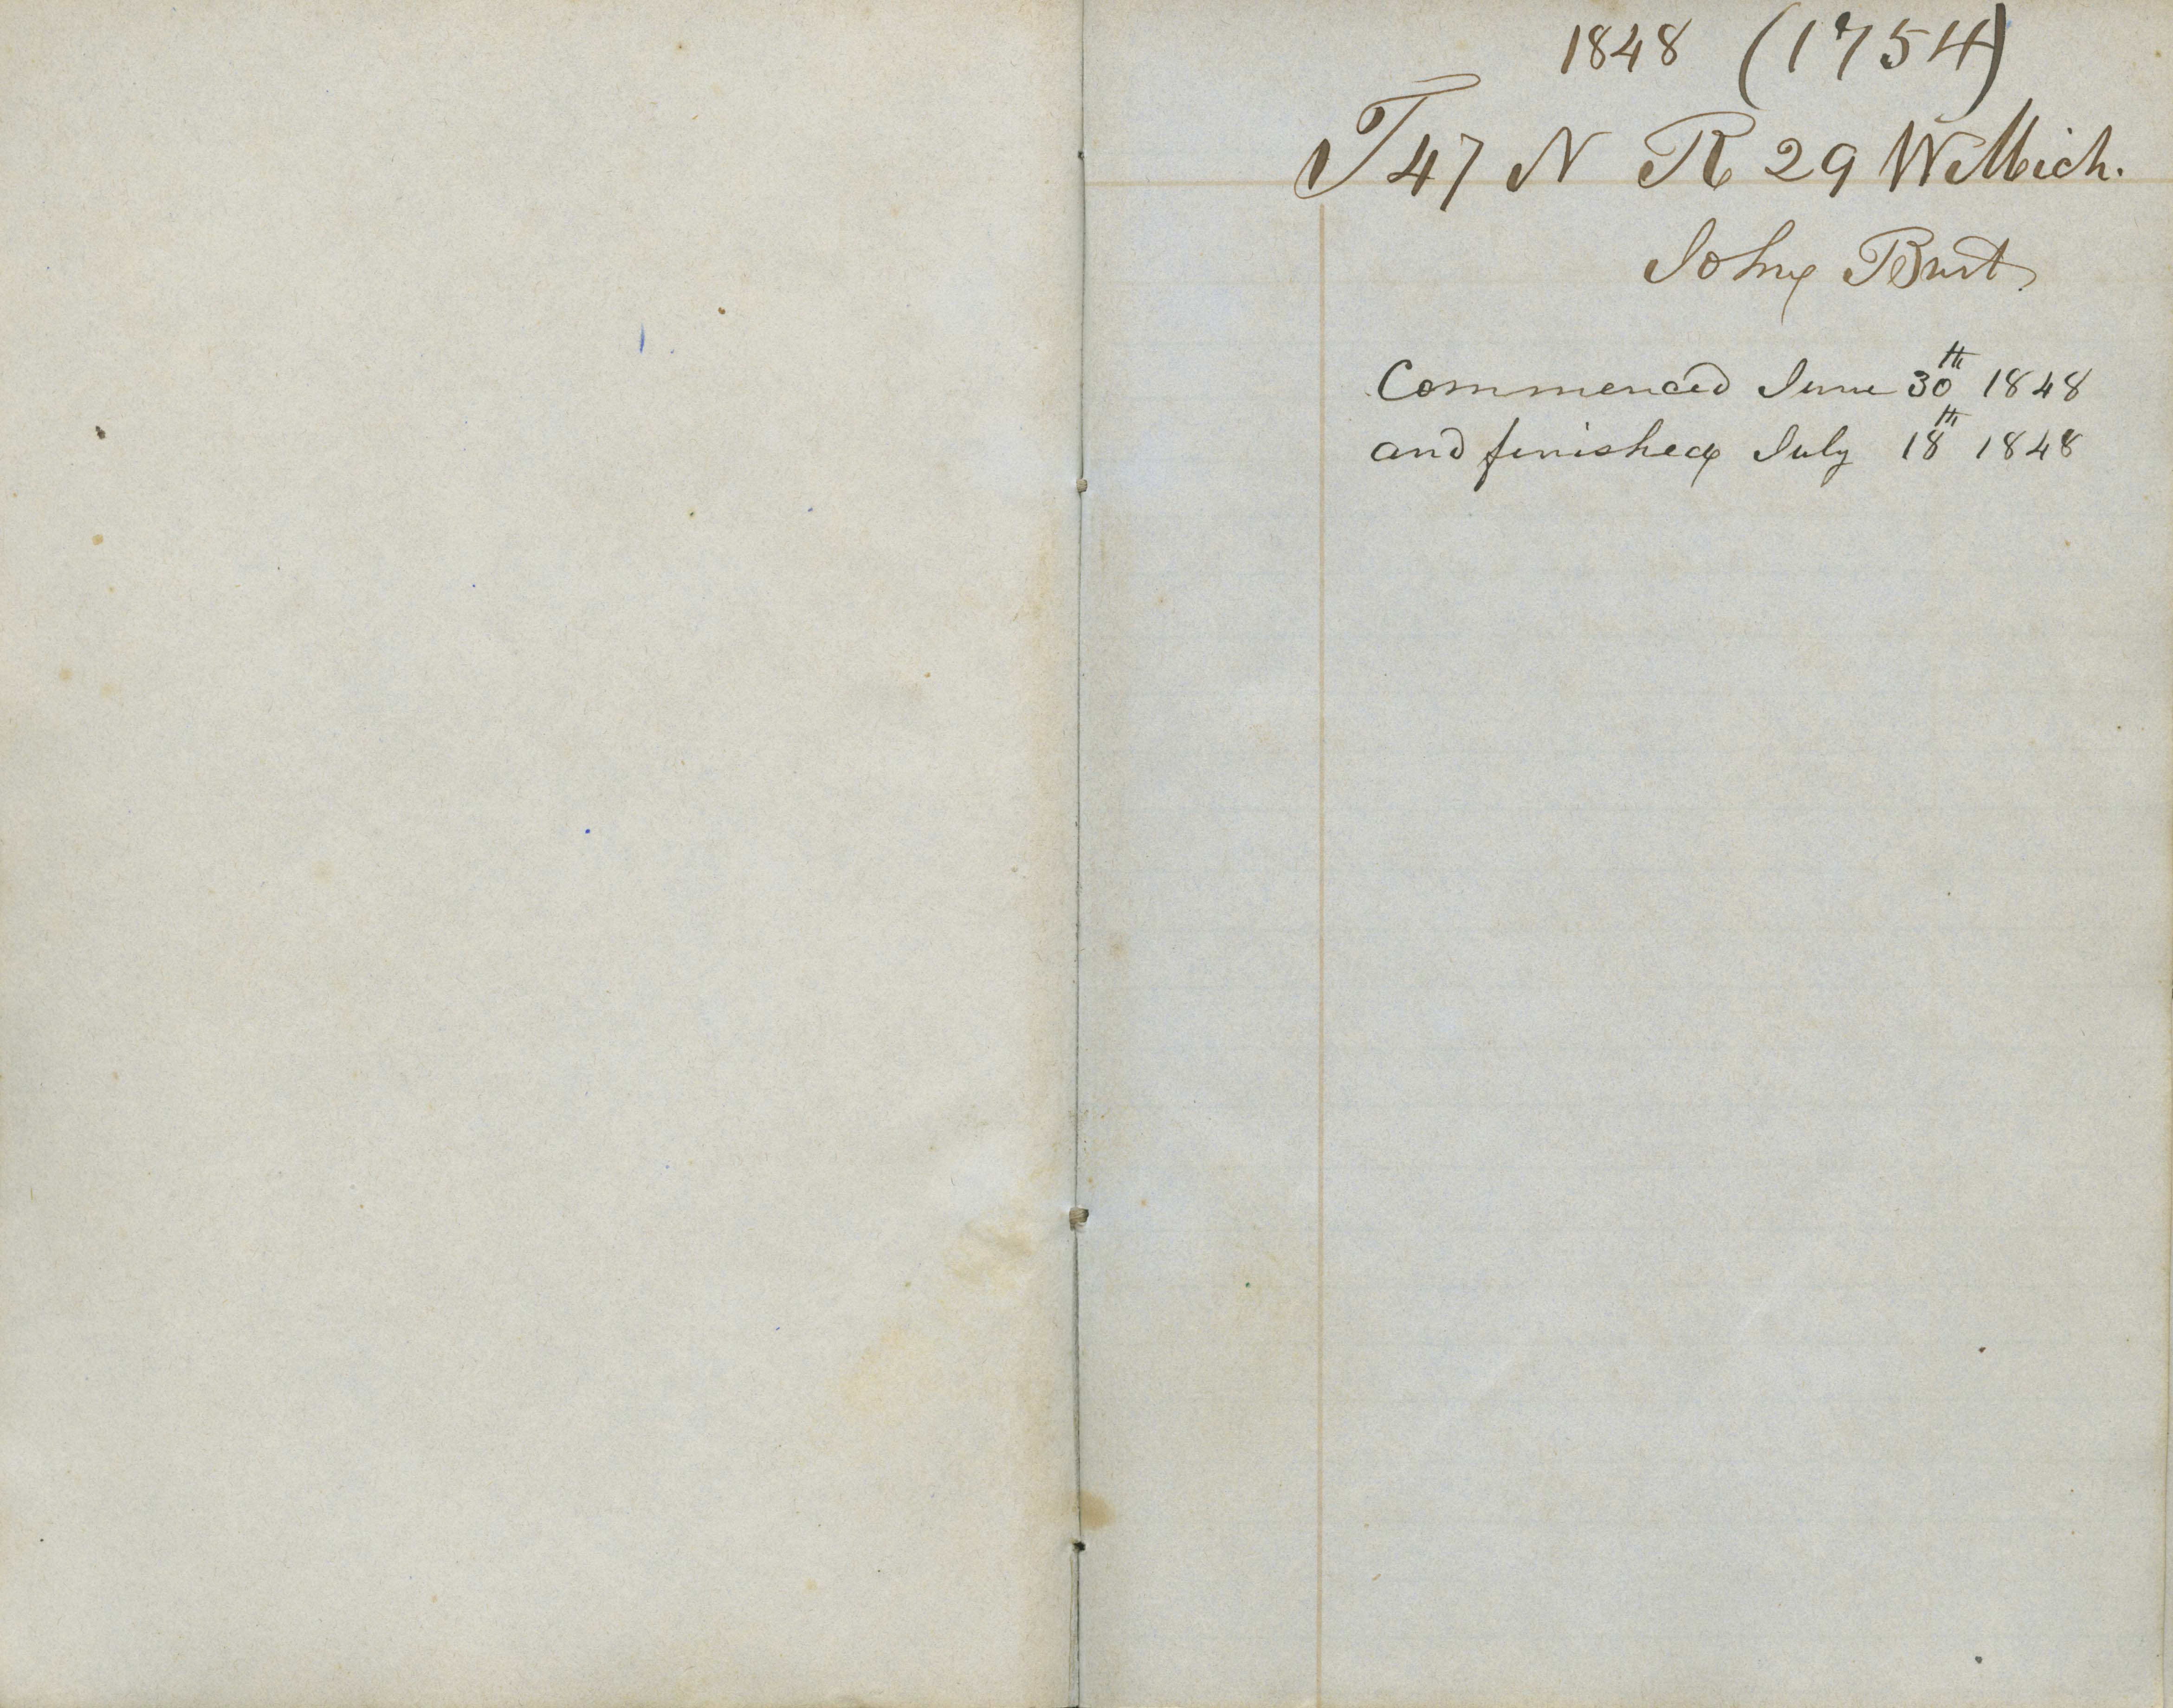 1848 (1754)
T 47 N R 29 W Mich.
John Burt
Commenced June 30th 1848
and finished July 18th 1848